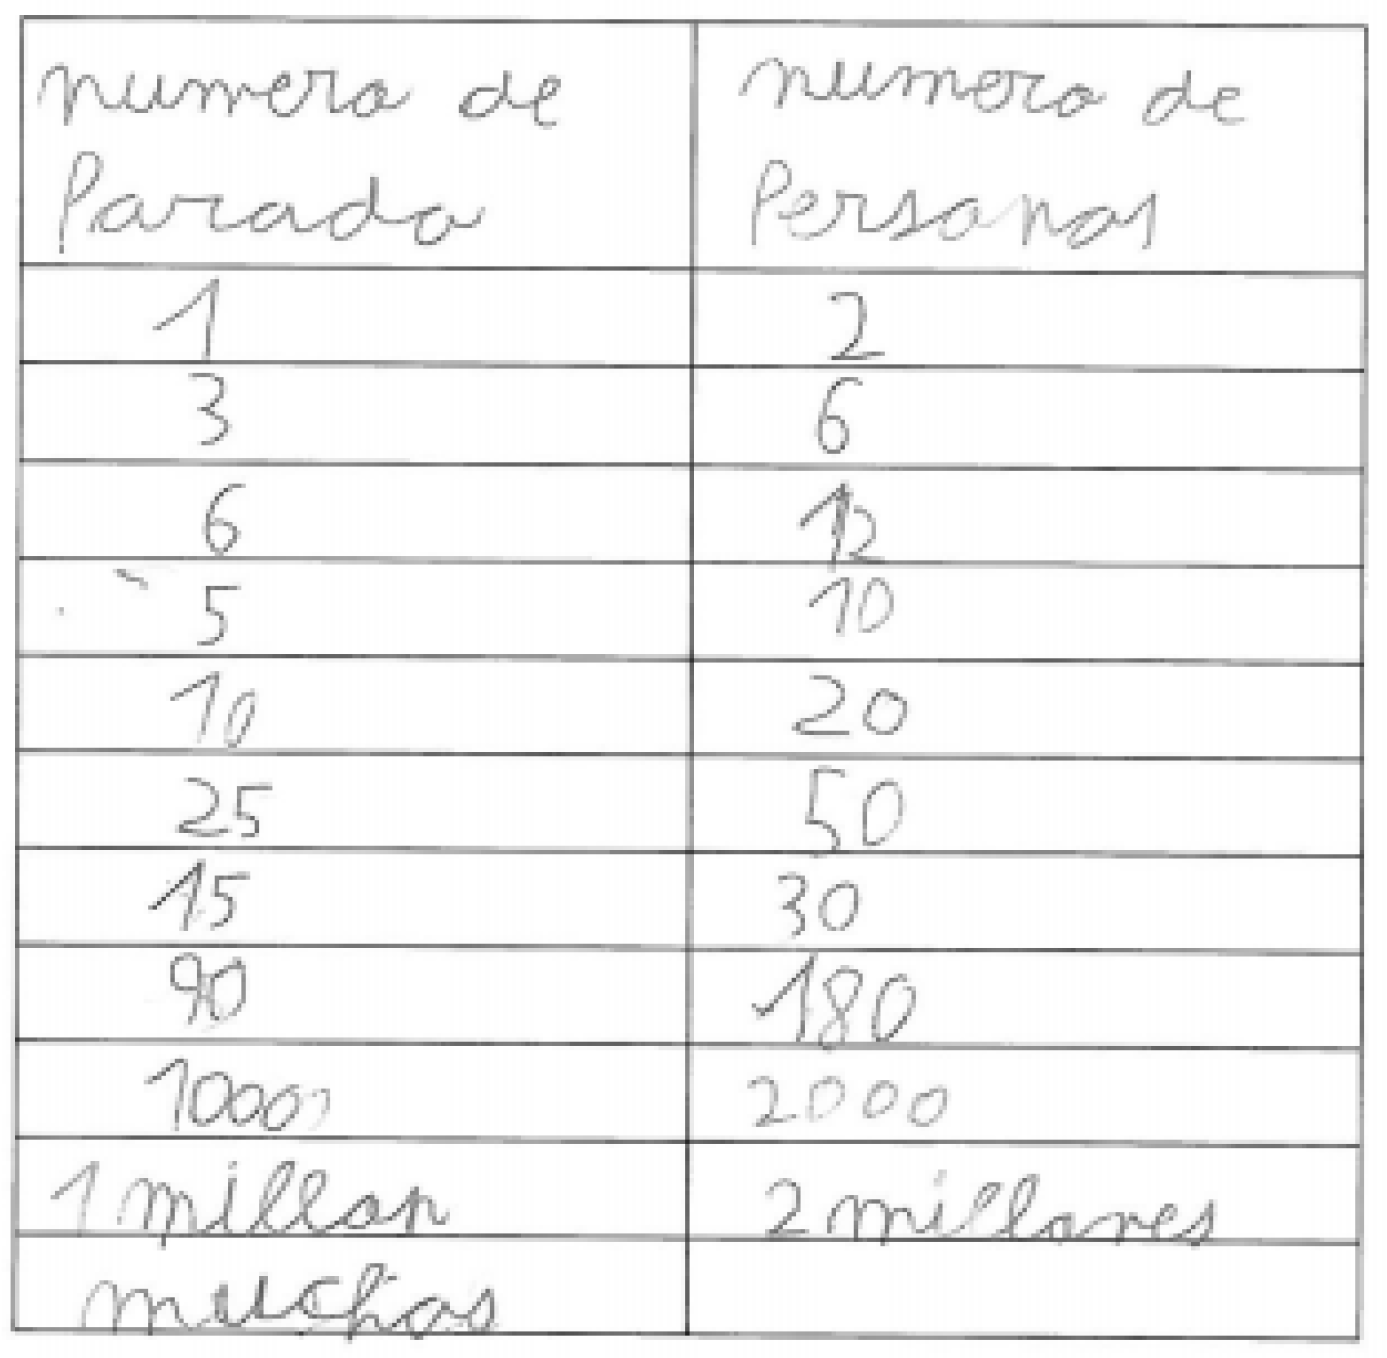 numero de numero de
Parada Personas
1 2
3 6
6 12
5 10
10 20
25 50
15 30
90 180
1000 2000
1 millon 2 millones
muchas